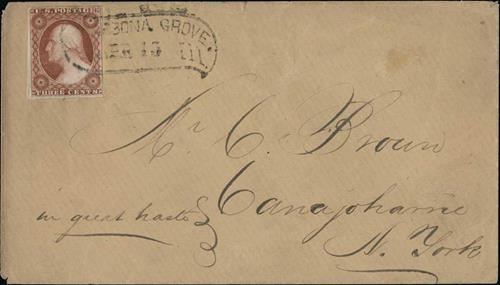 U.S. POSTAGE
THREE CENTS
BONA GROVE
13 ILL.
Mr C. Brown
Canajoharie
in great haste
N. York